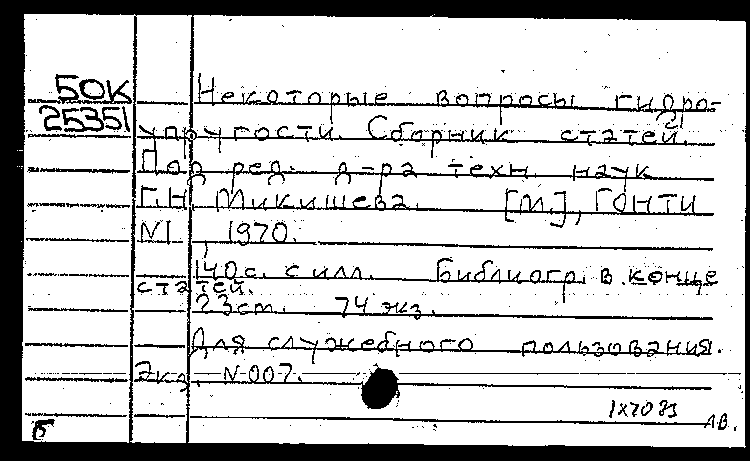 50К
25351
Некоторые вопросы гидро-
упругости. Сборник статей.
Под ред. д-ра техн. наук
Г.Н. Микишева. [М.], ГОНТИ
N1, 1970.
140 с. с илл. Библиогр. в конце
статей.
23см. 74 экз.
Для служебного пользования.
Экз. N 007.
АВ.
Б